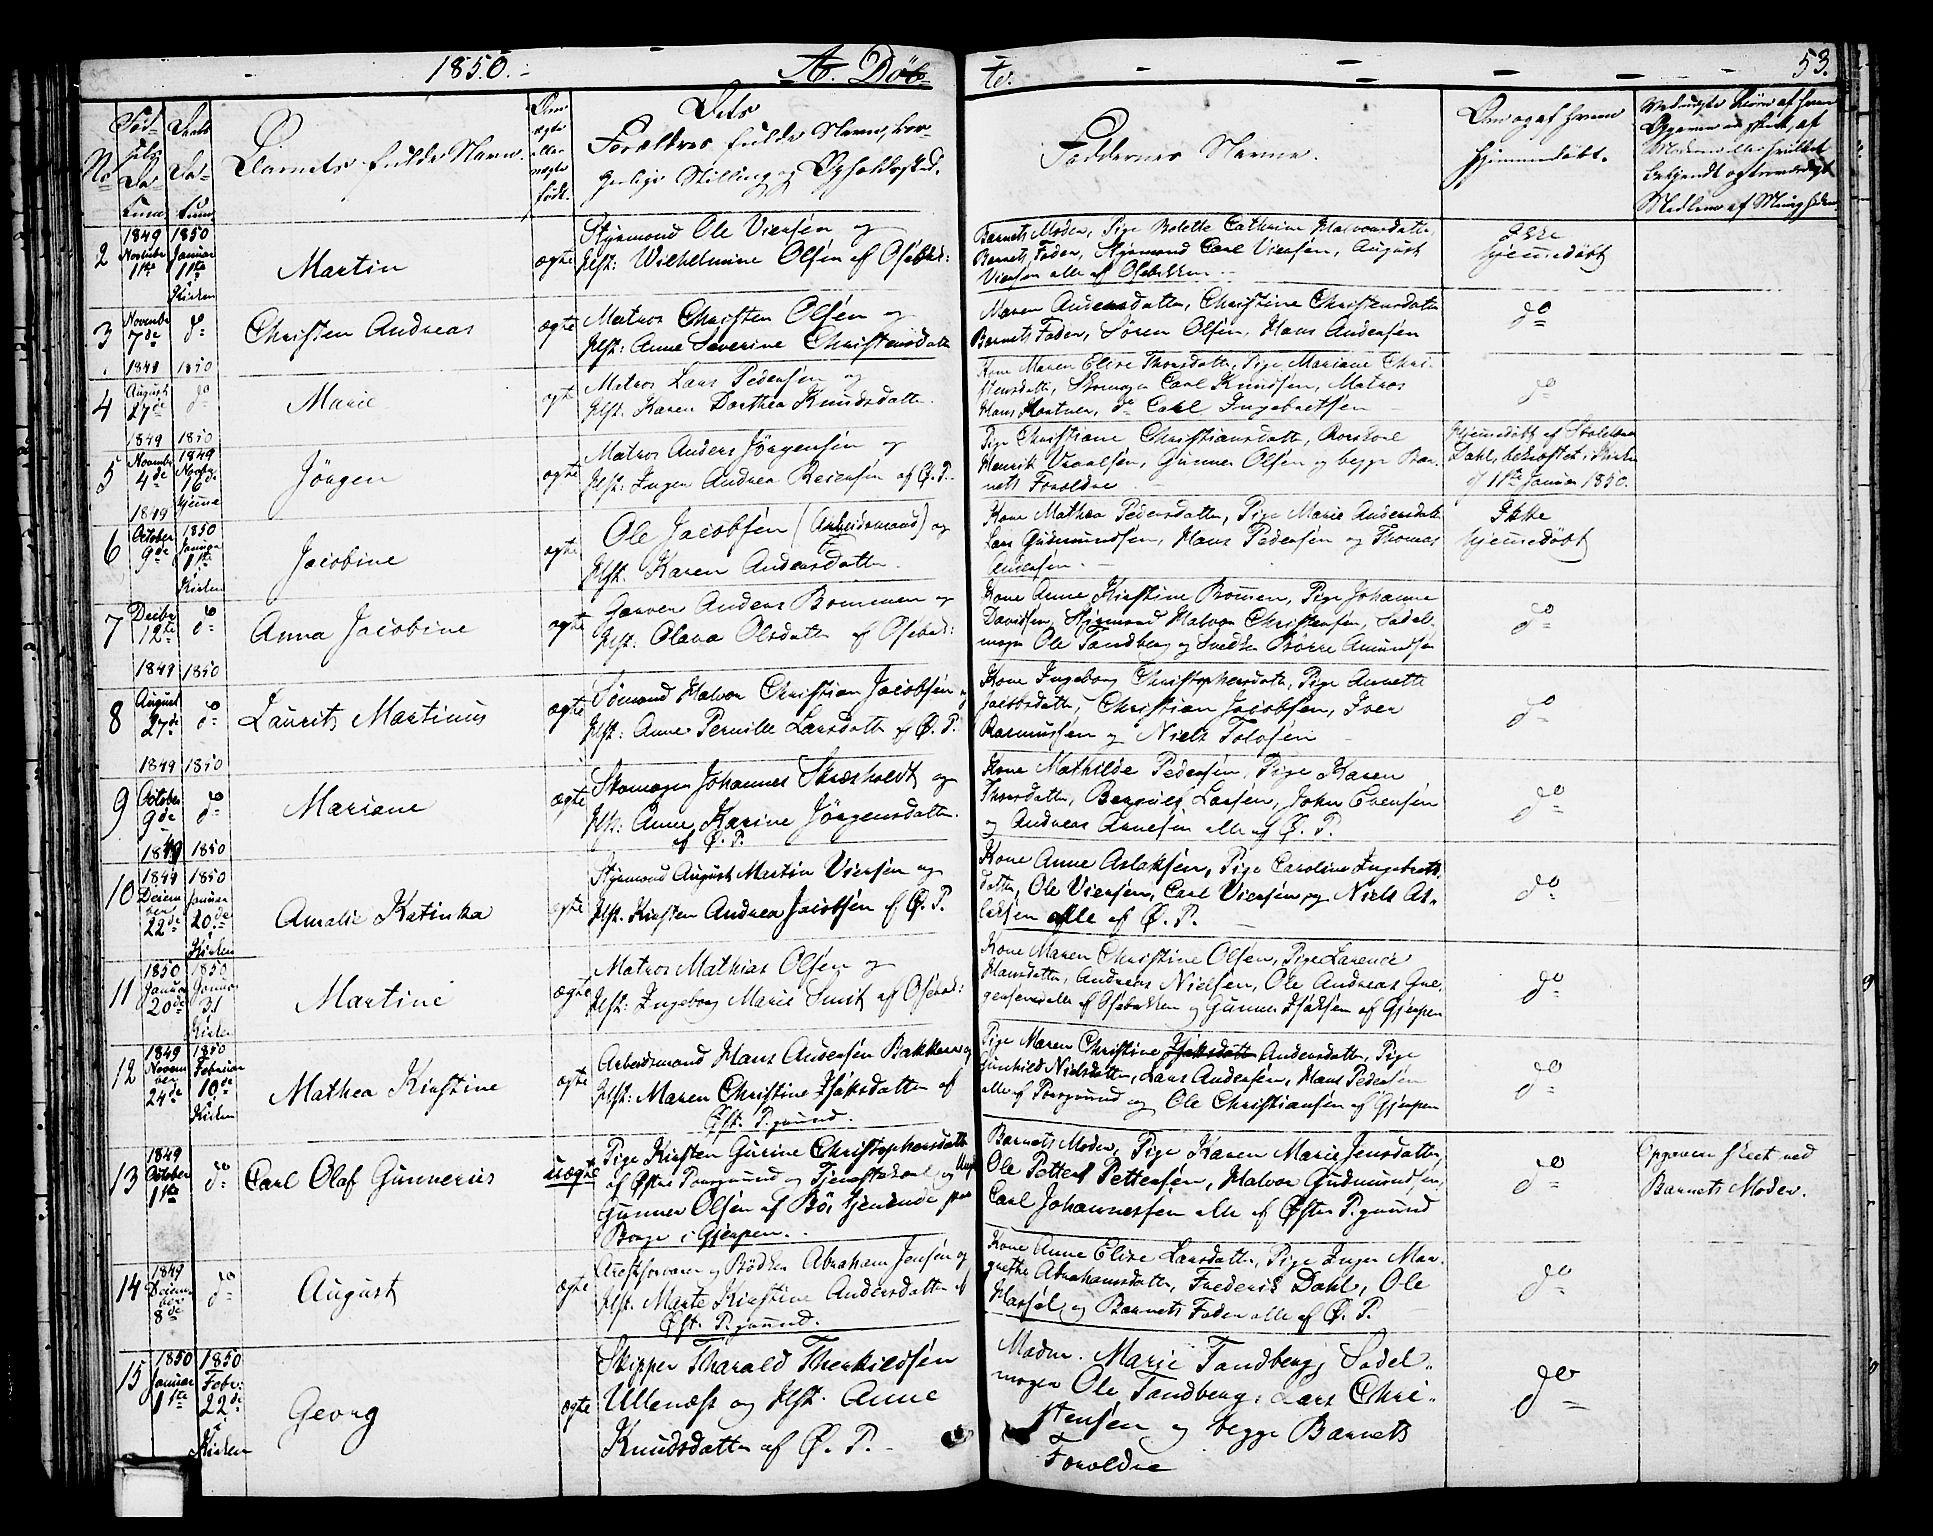 1850.
A. Döb-
te.
53.
No
Barnets fulde Navn.
Dets
Forældres fulde Navn, bor-
gerlige Stilling og Opholdssted.
Faddernes Navne.
Om og af hvem
hjemmedøbt.
2
1849
1ste
1850
Januar
1ste
i
Kirken
Martin
ægte
Styrmand Ole Viersen og
Hst: Wilhelmine Olsén af Osebak:
Barnets Moder, Pige Bolette Cathrine Halvorsdatter
Barnets Fader, Styrmand Carl Viersén, August
Viersen alle af Osebakken
Ikke
hjemmedøbt
3
November
7de
do
Christen Andreas
ægte
Matros Christen Olsén og
Hst: Anne Severine Christensdatter
Maren Andersdatter, Christine Christensdatter
Barnets Fader, Søren Olsén, Hans Andersén
do
4
1849
August
27de
1850
do
Marie
ægte
Matros Lars Pedersén og
Hst. Karen Dorthea Knudsdatter
Kone Maren Elise Thorsdatter, Pige Mariane Chri-
stensdatter, Skomager Carl Knudsén, Matros
Hans, do Carl Ingebretsén
do
5
1849
November
4de
1850
1849
16de
hjemme
Jörgen
ægte
Matros Anders Jörgensén og
Hst: Inger Andrea Reiersén af Ø. P.
Pige Christiane Christiansdatter,
Henrik, Gunner Olsén og begge Bar-
nets Foroldre
Hjemmedøbt af
Dahl, bekræftet i Kirken
d 1ste Januar 1850.
6
1849
October
9de
1850
Januar
1ste
i
Kirken
Jacobine
ægte
Ole Jacobsén (Arbeidsmand) og
Hst. Karen Andersdatter
Kone Mathea Pedersdatter, Pige Marie Andersdatter
Lars Gudmundsén, Hans Pedersén og Thomas
Andersén
Ikke
hjemmedøbt
7
Decbr
12te
do
Anna Jacobine
ægte
Garver Anders Bommen og
Hst. Olava Olsdatter af Osebak:
Kone Anne Kirstine Bommen, Pige Johanne
Davidsen, Styrmand Halvor Christensén, Sadel-
mager Ole Tandberg og Snedker Börre Amundsén
do
8
1849
August
27de
1850
do
Laurits Martinus
ægte
Sømand Halvor Christian Jacobsén og
Hst: Anne Pernille Larsdatter af Ø. P.
Kone Ingeborg Christophersdatter, Pige Annette
Jacobsdatter, Christian Jacobsén, Iver
Rasmussén og Niels Tolofsén
do
9
1849
October
9de
1850
do
Mariane
ægte
Skomager Johannes og
Hst: Anne Karine Jörgensdatter
af Ø. P.
Kone Mathilde Pedersén, Pige Karen
Thorsdatter, Larsén, John Evensén
og Andreas Arnesén alle af Ø. P.
do
1849 1850
10
1849
Decem
ber
22de
1850
Januar
20de
i
Kirken
Amalie Katinka
ægte
Styrmand August Martin Viersén og
Hst. Kirsten Andrea Jacobsén af Ø. P.
Kone Anne Aslaksén, Pige Caroline Ingebrets-
datter, Ole Viersén, Carl Viersén og Niels As-
laksén alle af Ø. P.
do
11
1850
Januar
20de
1850
Januar
31
Kirken
Martine
ægte
Matros Mathias Olsén og
Hst. Ingeborg Marie Smit af Osebak:
Kone Maren Christine Olsén, Pige Larence
Hansdatter, Andreas Nielsén, Ole Andreas Gre-
gersén alle af Osebakken og Gunner Isaksén af Gjerpen
do
12
1849
Novem
ber
24de
1850
Februar
10de
i
Kirken
Mathea Kirstine
ægte
Arbeidsmand Hans Andersén Bakken og
Hst: Maren Christine Isaksdatter af
Øst. P.grund.
Pige Maren Christine Isaksdatter Andersdatter, Pige
Gunhild Nielsdatter, Lars Andersén, Hans Pedersén
alle af Porsgrund og Ole Christiansén af Gjerpen
do
13
1849
October
1ste
do
Carl Olaf Gunnerius
uægte
Pige Kirsten Gurine Christophersdatter
af Østre Porsgrund og Tjenestekarl og Ungk
Gunner Olsén af Bö, tjenende paa
Borge i Gjerpen.
Barnets Moder, Pige Karen Marie Jensdatter,
Ole Petter Pettersén, Halvor Gudmundsén,
Carl Johannessén alle af Øster P.grund
do
Opgaven skeet ved
Barnets Moder.
14
1849
Decem
ber
8de
do
August
ægte
Arrestforvarer og Bödker Abraham Jensén og
Hst. Marte Kirstine Andersdatter af
Øst. P.grund.
Kone Anne Elise Larsdatter, Pige Inger Mar-
grethe Abrahamsdatter, Frederik Dahl, Ole
og Barnets Fader alle af Ø. P.
do
15
1850
Januar
1ste
1850
Febr:
22de
i
Kirken
Georg
ægte
Skipper Tharald Therkildsén
Ullenæst og Hst. Anne
Knudsdatter af Ø. P.
Madm. Marie Tandberg, Sadel-
mager Ole Tandberg, Lars Chri-
stensén og begge Barnets
Foroldre
do